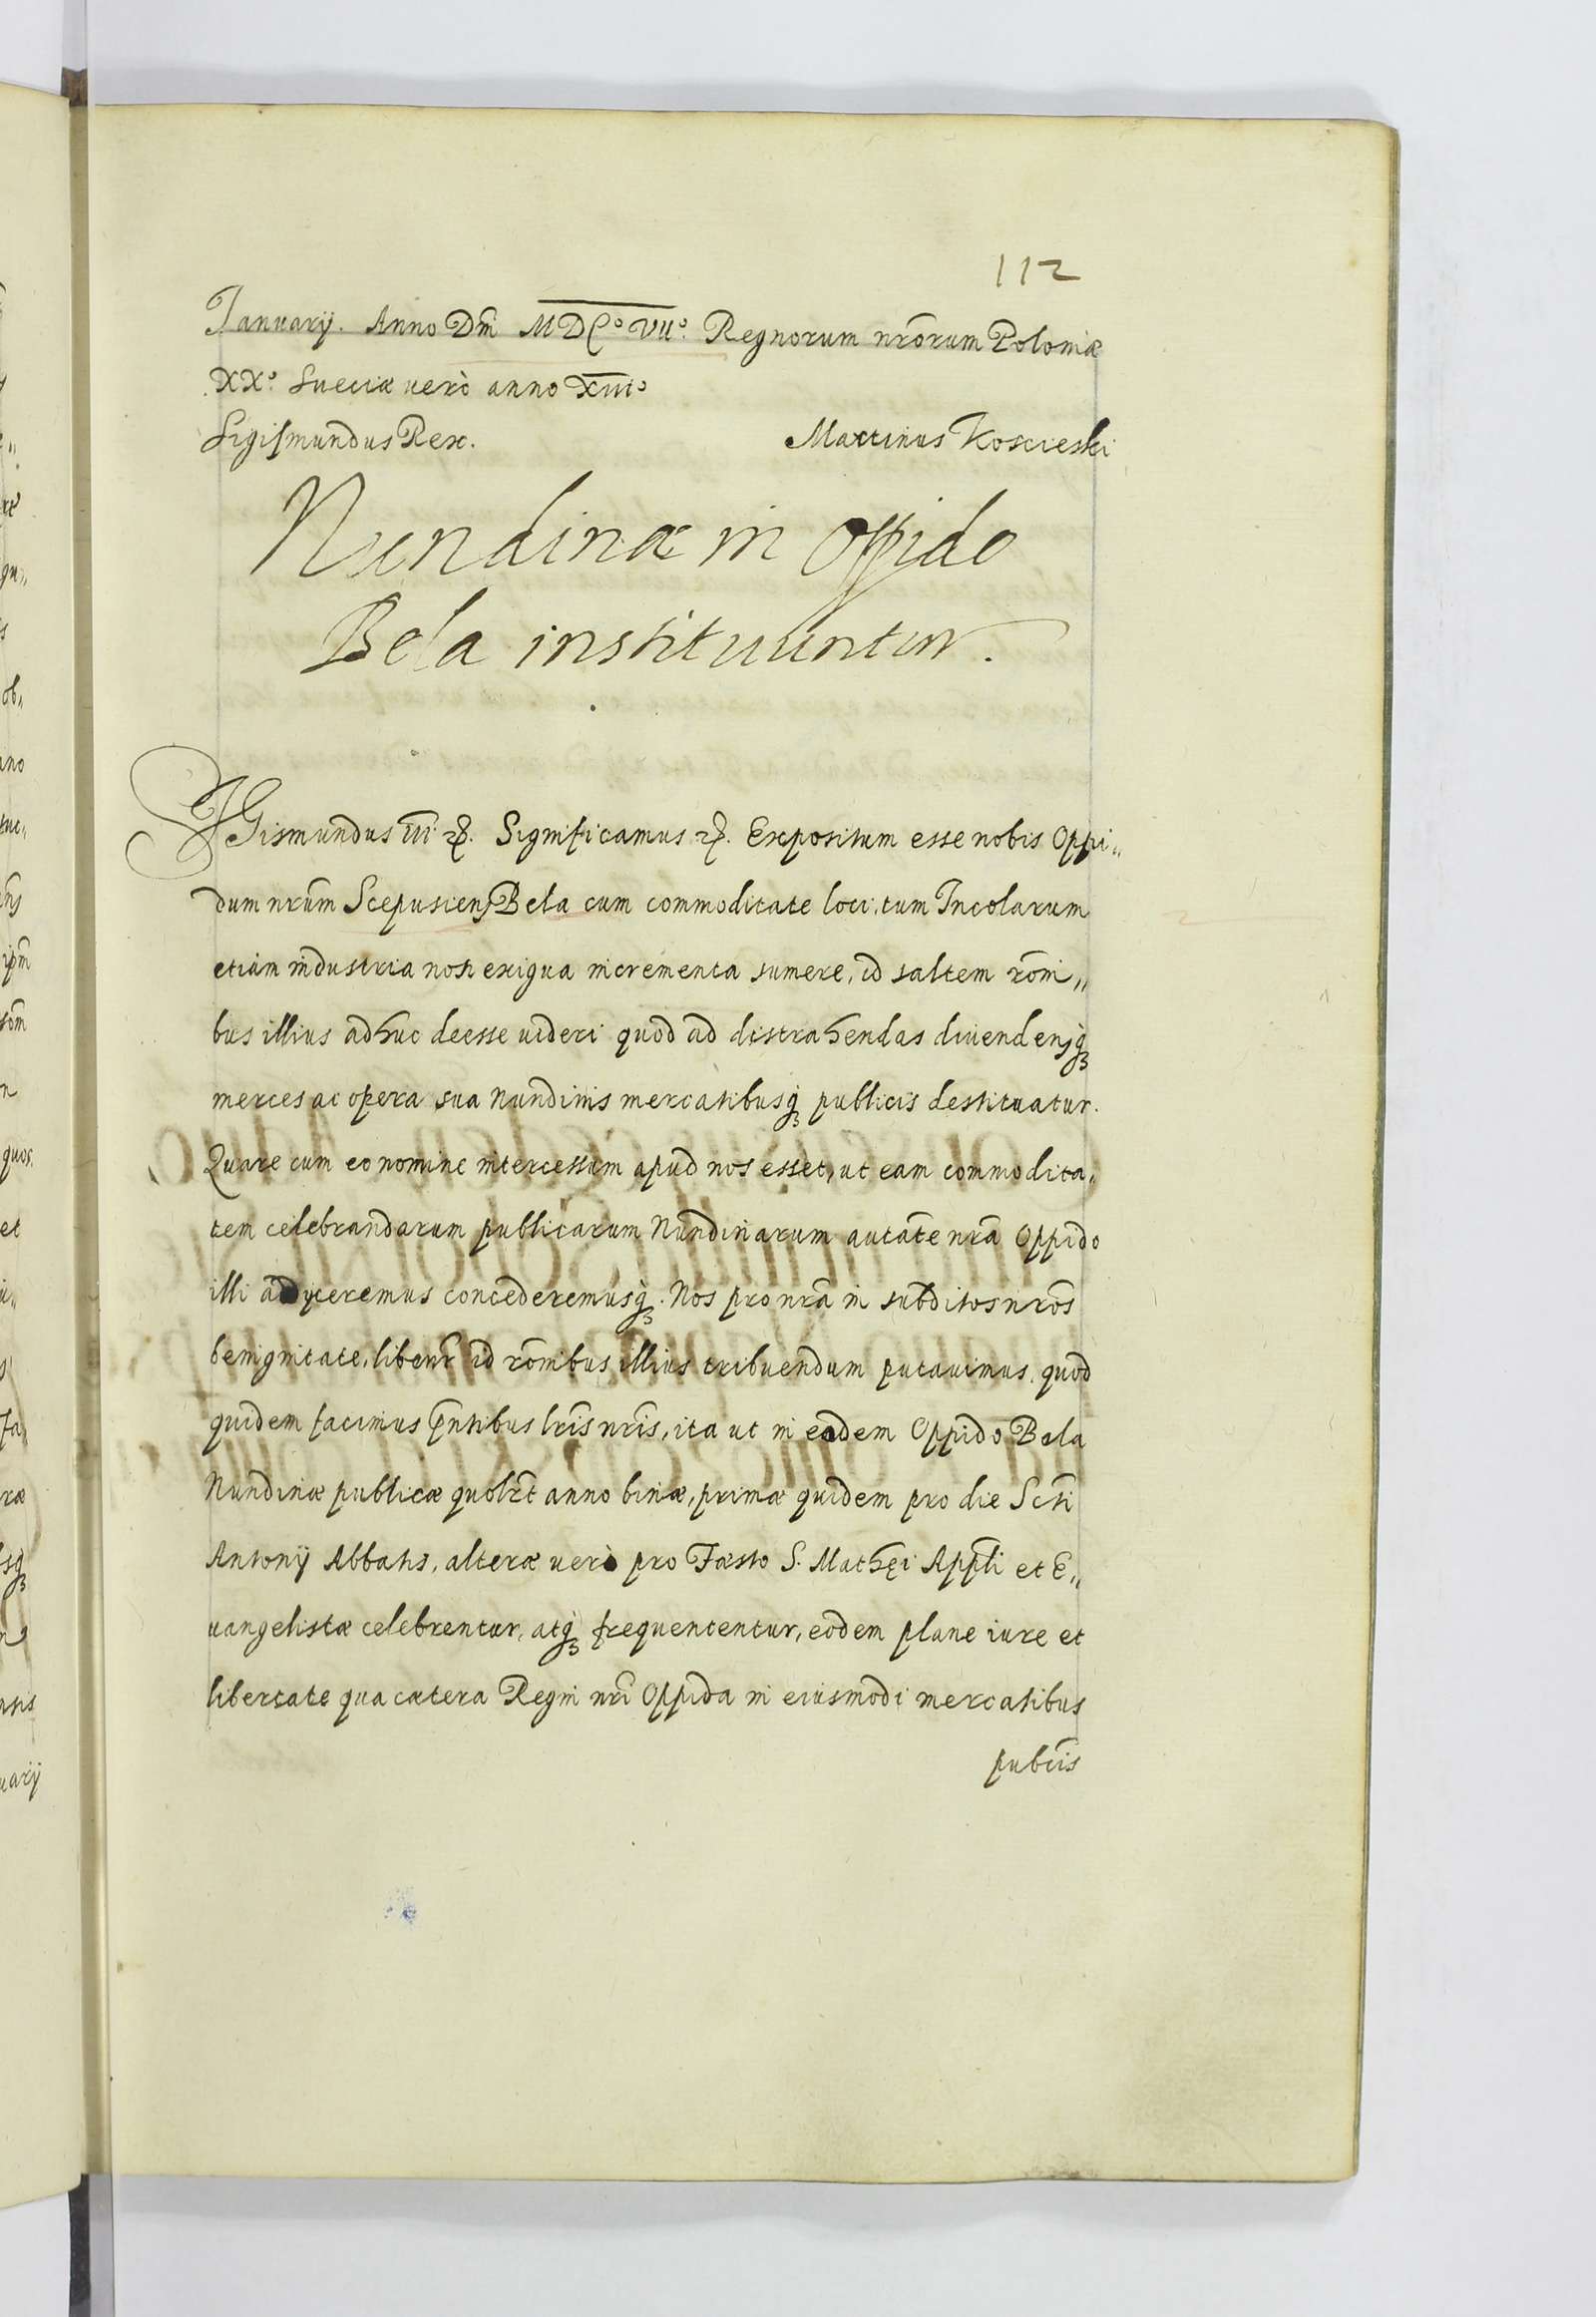 112
Januarij. Anno Dm̃i MDCº VIIº. Regnorum nr̃orum Poloniæ
XXº. Sueciæ uerò anno XIIIº
Sigismundus Rex. Martinus Koscieski
Nundinæ in Oppido
Bela instituuntur.
SIGismundus III ꝛc̃. Significamus ꝛc̃. Expositum esse nobis Oppi„
dum nr̃um Scepusiens̃ Bela cum commoditate loci, tum Incolarum
etiam industria non exigua incrementa sumere, id saltem rõni„
bus illius adhuc deesse uideri quod ad distrahendas diuendensq́ꝫ
merces ac opera sua Nundinis mercatibusq́ꝫ publicis destituatur.
Quare cum eo nomine intercessum apud nos esset, ut eam commodita„
tem celebrandarum publicarum Nundinarum autãte nr̃a Oppido
illi adijceremus concederemusq́ꝫ. Nos pro nr̃a in subditos nr̃os
benignitate, libenr̃ id rõnibus illius tribuendum putauimus. quod
quidem facimus p̃ntibus lr̃is nr̃is, ita ut in eodem Oppido Bela
Nundinæ publicæ quolr̃t anno binæ, primæ quidem pro die Scti
Antonij Abbatis, alteræ uerò pro Fæsto S. Mathęi App̃li et E„
uangelistæ celebrentur, atq́ꝫ frequententur, eodem plane iure et
libertate qua cætera Regni nr̃i Oppida in eiusmodi mercatibus
pubc̃is